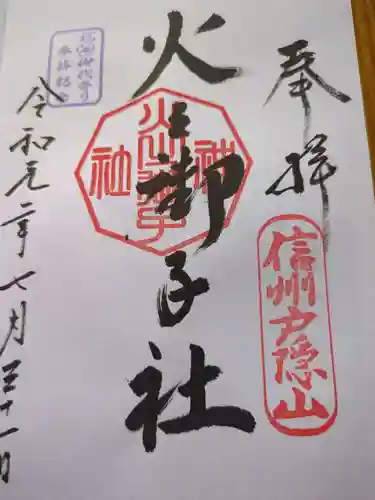 奉拝
信州戸隠山
火之御子社
令和元年七月三十一日